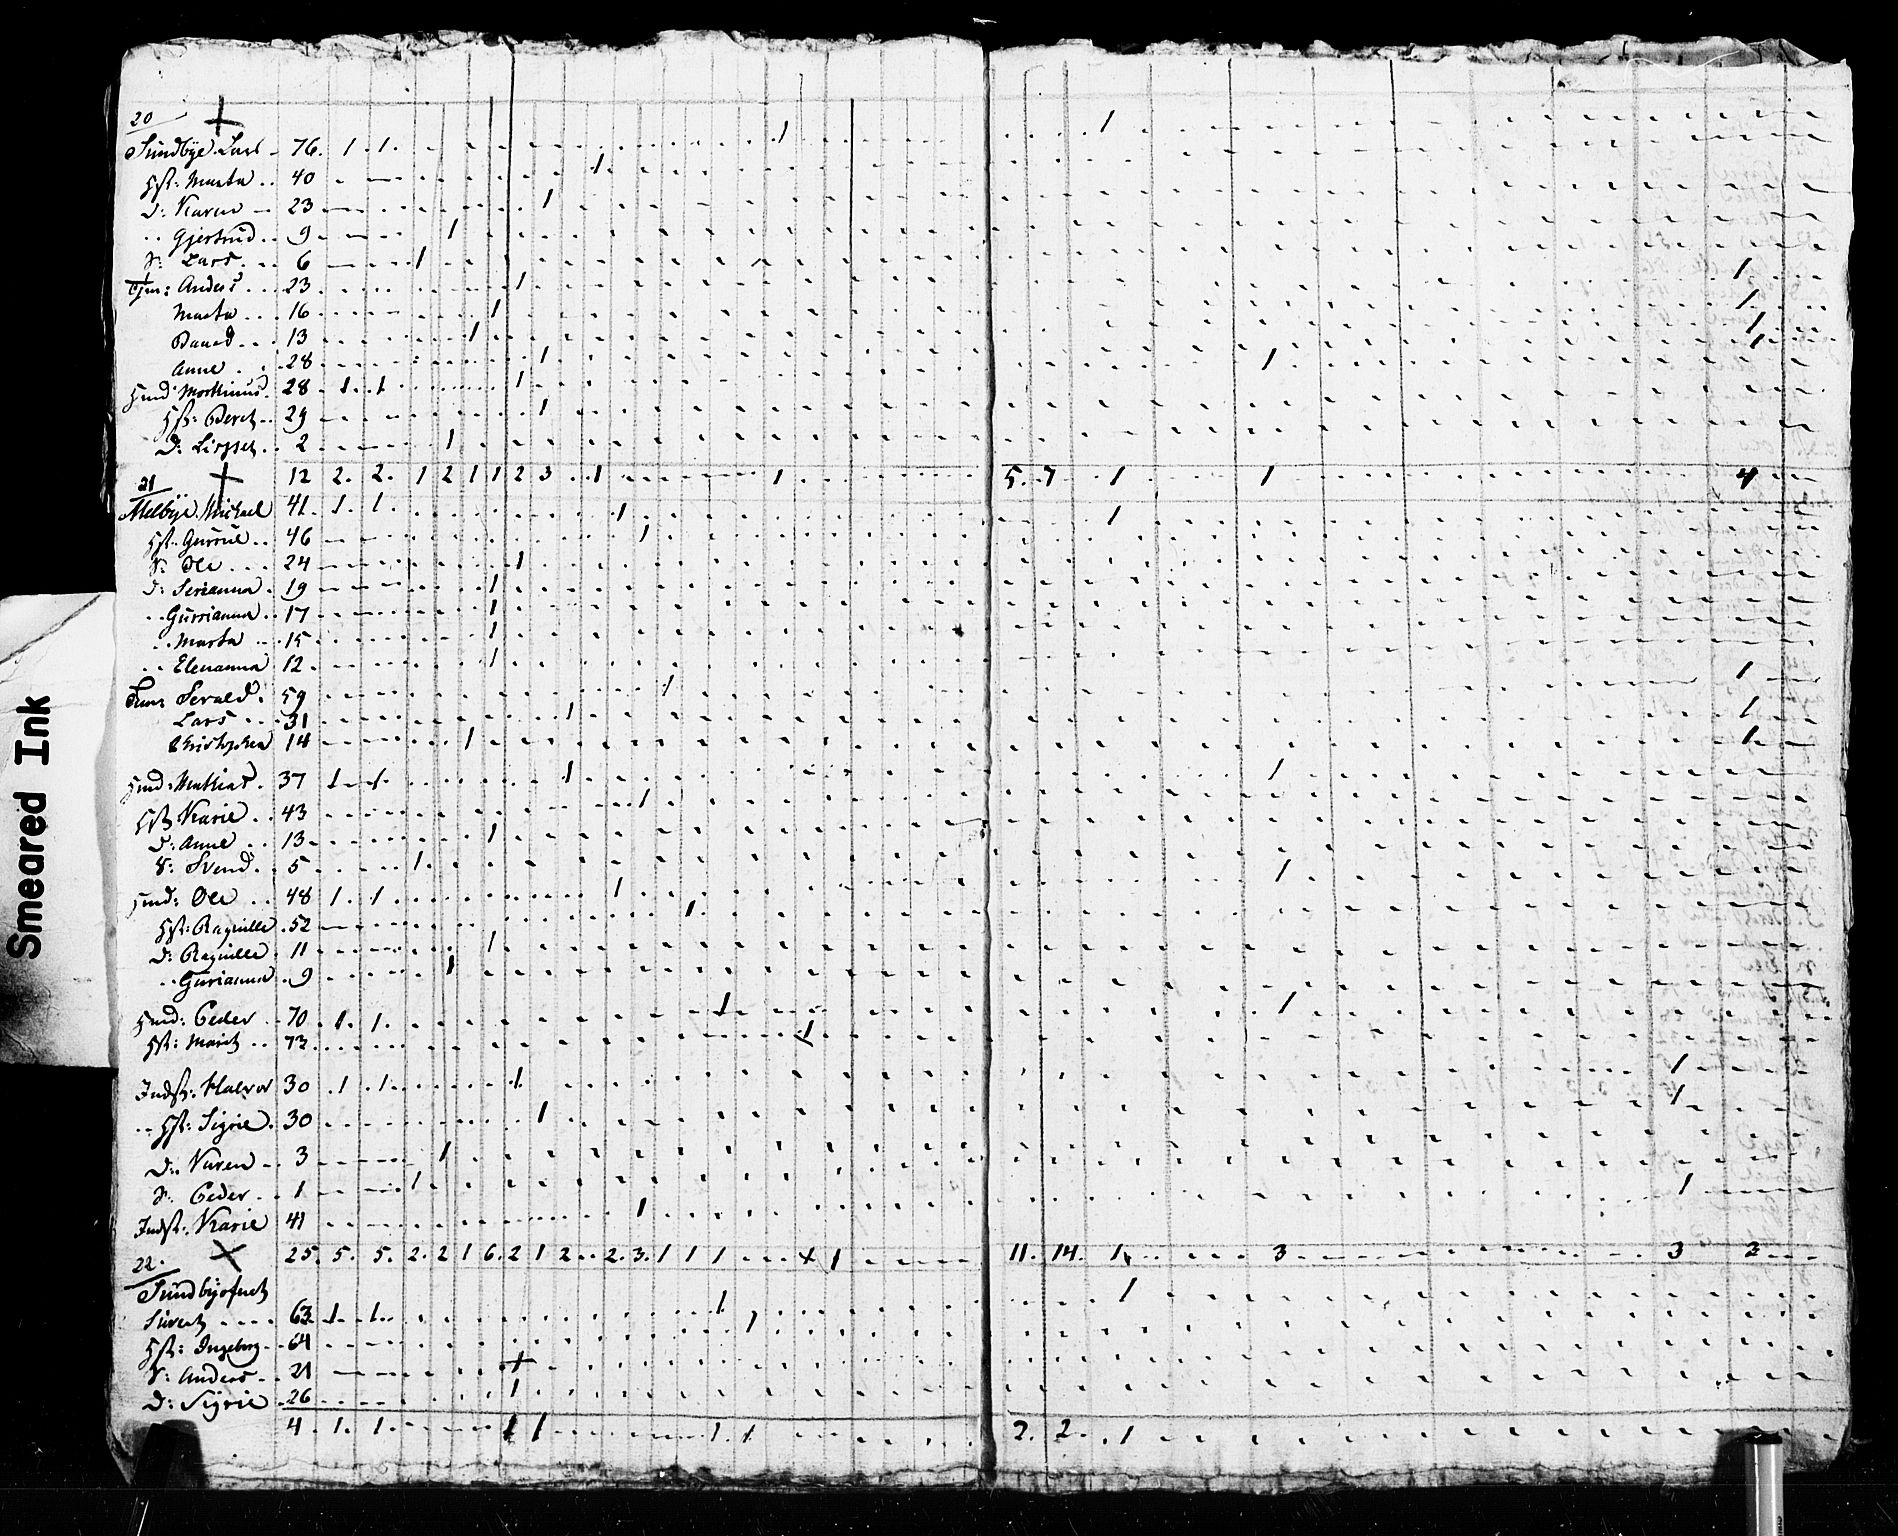 20
Sundbye Lars 76. 1. 1. 1 1
Hst: Marta 40 1
D: Karen 23 1
Gjertrud 9 1
S: Lars 6 1
Tjen: Anders 23 1 1
Marta 16 1 1
13 1 1
Anne 28 1 1
Huusd Morthinus 28 1 1 1 1
Hst: Beret 29 1
D: Lispet 2 1
12 2. 2. 1 2 1 1 2 3 1 1 5. 7 1 1 4
21
Melbye Michael 41. 1. 1 1 1
Hst: Gurrul 46 1
S: Ole 24 1
D: Serianna 19 1
Gurrianna 17 1
Marta 15 1
Elenanna 12 1
59 1 1
Lars 31 1 1
Christopher 14 1 1
Hmd: Mathias 37 1 1 1 1
Hst Karie 43 1
D: Anne 13 1
S: Svend 5 1
Hmd: Ole 48 1. 1 1 1
Hst: Ragnille 52 1
D: Ragnille 11 1
Gurianna 9 1
Hmd: Peder 70 1. 1. 1 1
Hst: Marit 73 1
Indst: Halvor 30 1 1 1 1
Hst: Sigrie 30 1 1
D: Karen 3 1
S: Peder 1 1
Indst: Karie 41 1 1
25. 5. 5. 2. 2 1 6. 2 1 2 2. 3. 1 1 1 1 11. 14. 1 3 3 3
22.
Sundbyefnet
Sivert 63 1 1 1 1
Hst: Ingeborg 64 1
S: Anders 21 1
D: Sigrie 26 1
4. 1. 1 1 1 1. 1 2. 2. 1
Smeared Ink